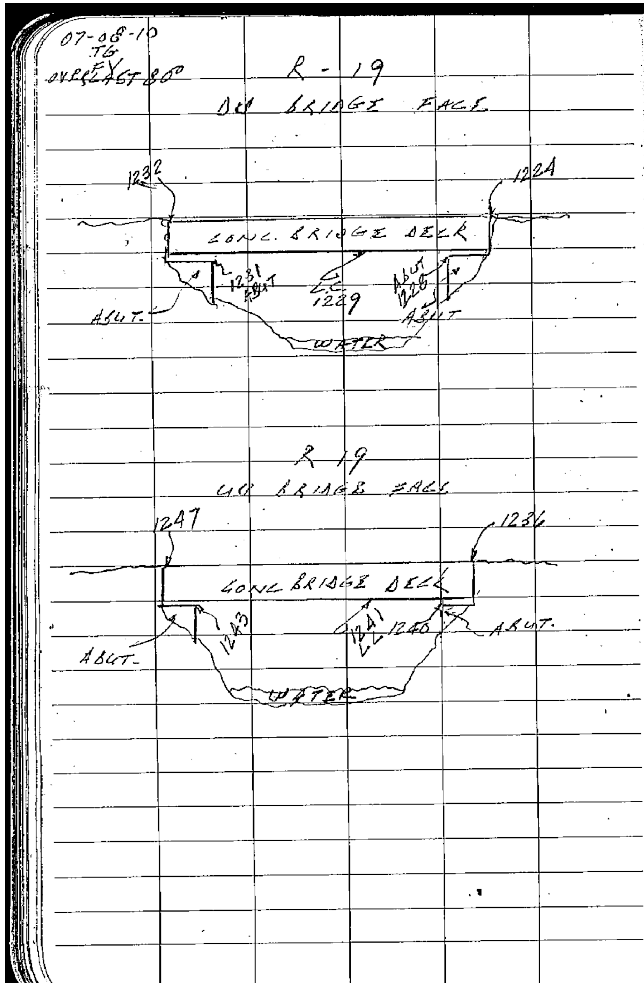 07-08-10
TG
EV
OVERCAST 80°
R-19
DN BRIDGE FACE
1232
1224
CONC. BRIDGE DECK
1231
ABUT
L.C.
1229
ABUT
1228
ABUT.
ABUT
WATER
R-19
UP BRIDGE FACE
1247
1236
CONC BRIDGE DECK
1243
1241
L.C.
1240
ABUT.
ABUT.
WATER